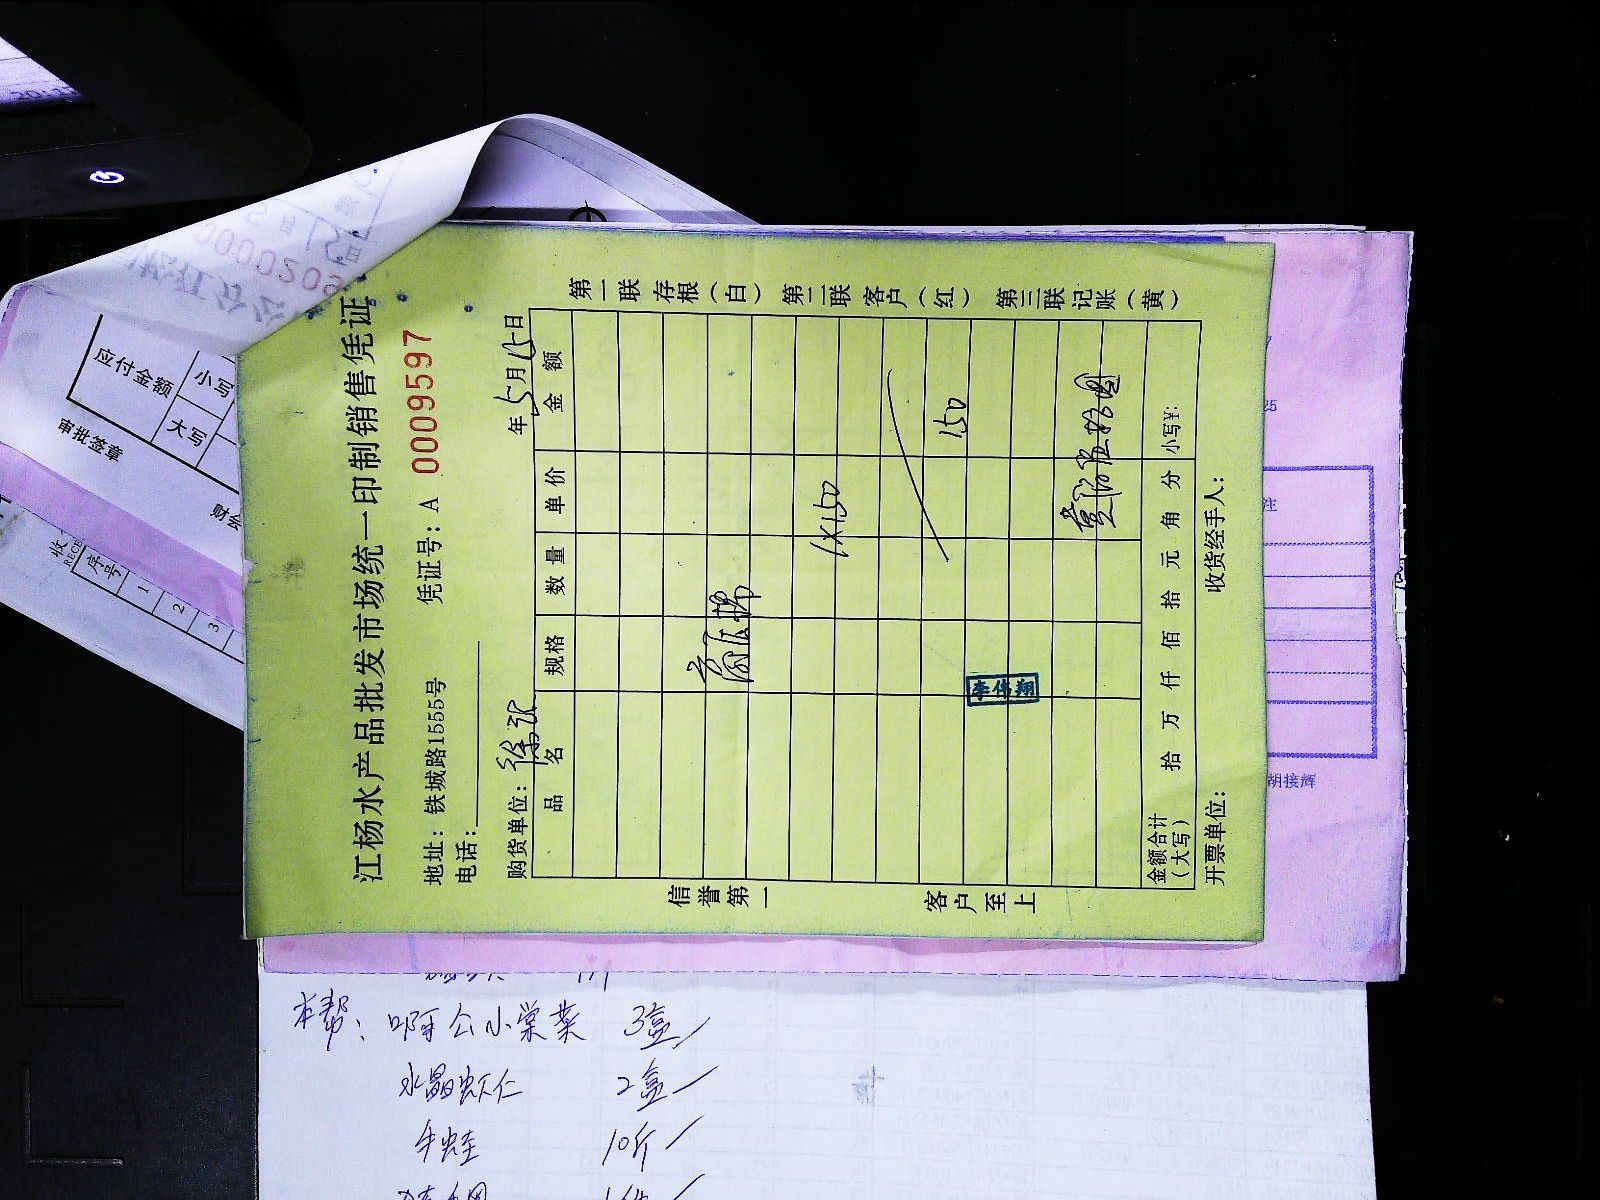 江杨水产品批发市场统一印制销售凭证
地址：铁城路1555号 凭证号：A 0009597
电话：
购货单位： 年5月15日
品名 规格 数量 单价 金额
1×150
150
李伟翔
金额合计（大写） 拾 万 仟 佰 拾 元 角 分 小写¥:
开票单位： 收货经手人：
第一联 存根（白） 第二联 客户（红） 第三联 记账（黄）
信誉第一 客户至上
应付金额 小写
大写
审批签章
财会
收
RECE
序号
1
2
3
25
注
胡接辉
本帮：啊公小棠菜 3盒
水晶虾仁 2盒
牛蛙 10斤